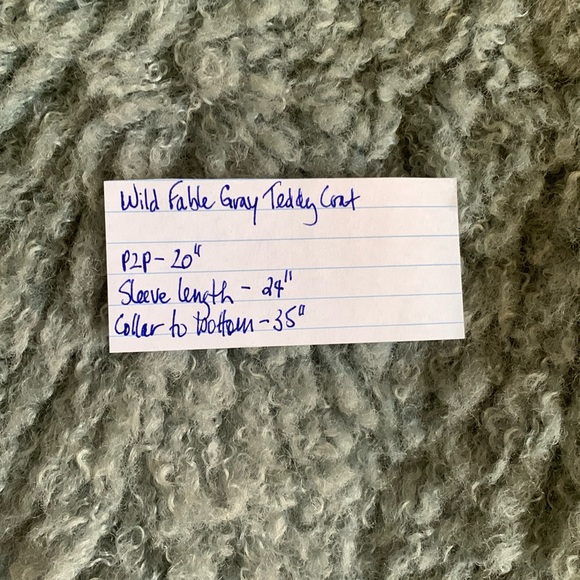 Wild Fable Gray Teddy Coat
P2P - 20"
Sleeve length - 24"
Collar to bottom - 35"